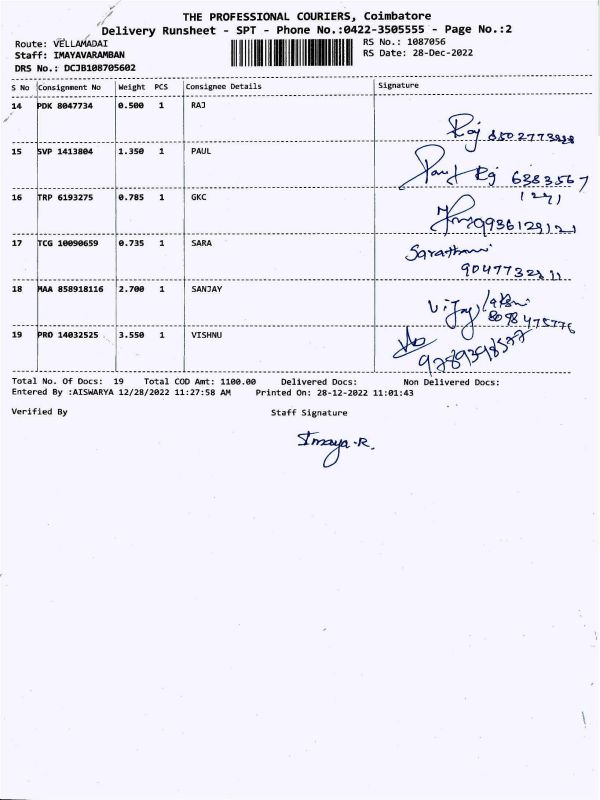 THE PROFESSIONAL COURIERS, Coimbatore
Delivery Runsheet - SPT - Phone No.:0422-3505555 - Page No.:2
Route: VELLAMADAI RS No.: 1087056
Staff: IMAYAVARAMBAN RS Date: 28-Dec-2022
DRS No.: DCJB108705602
S No Consignment No Weight PCS Consignee Details Signature
14 PDK 8047734 0.500 1 RAJ
Raj
15 SVP 1413804 1.350 1 PAUL
6383567
16 TRP 6193275 0.785 1 GKC
17 TCG 10090659 0.735 1 SARA
18 MAA 858918116 2.700 1 SANJAY
8098475776
19 PRO 14032525 3.550 1 VISHNU
Total No. Of Docs: 19 Total COD Amt: 1100.00 Delivered Docs: Non Delivered Docs:
Entered By :AISWARYA 12/28/2022 11:27:58 AM Printed On: 28-12-2022 11:01:43
Verified By Staff Signature
Imaya.R.